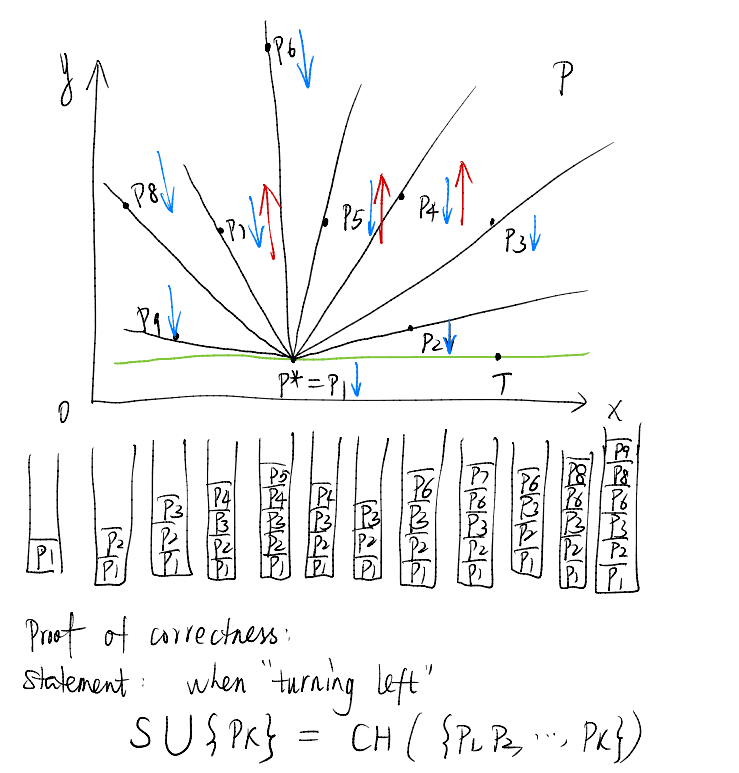 y
P6
P
P8
P7
P5
P4
P3
P9
P2
P* = P1
T
0
x
P1
P2
P1
P3
P2
P1
P4
P3
P2
P1
P5
P4
P3
P2
P1
P4
P3
P2
P1
P3
P2
P1
P6
P3
P2
P1
P7
P6
P3
P2
P1
P6
P3
P2
P1
P8
P6
P3
P2
P1
P9
P8
P6
P3
P2
P1
Proof of correctness:
Statement: when "turning left"
S ∪ {PK} = CH ( {P1, P2, ..., PK})